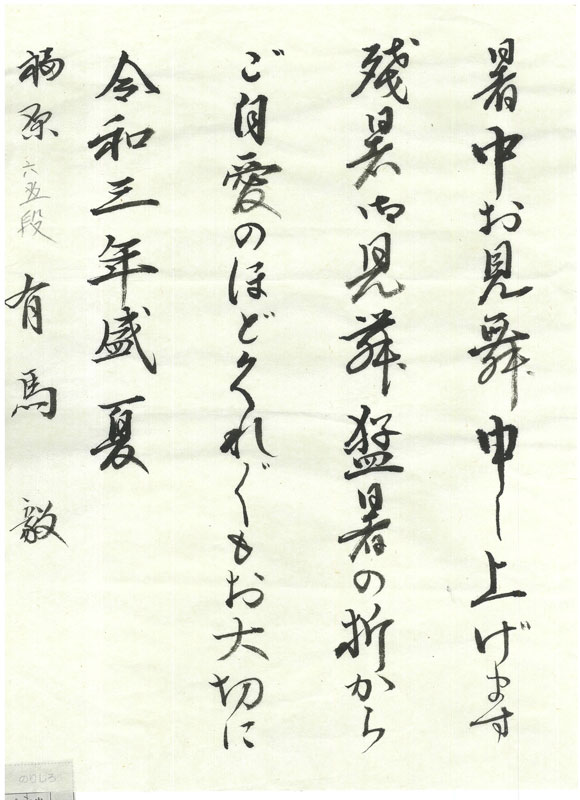 暑中お見舞申し上げます
残暑御見舞猛暑の折から
ご自愛のほどくれぐもお大切に
令和三年盛夏
福原六五段 有馬毅
のりしろ